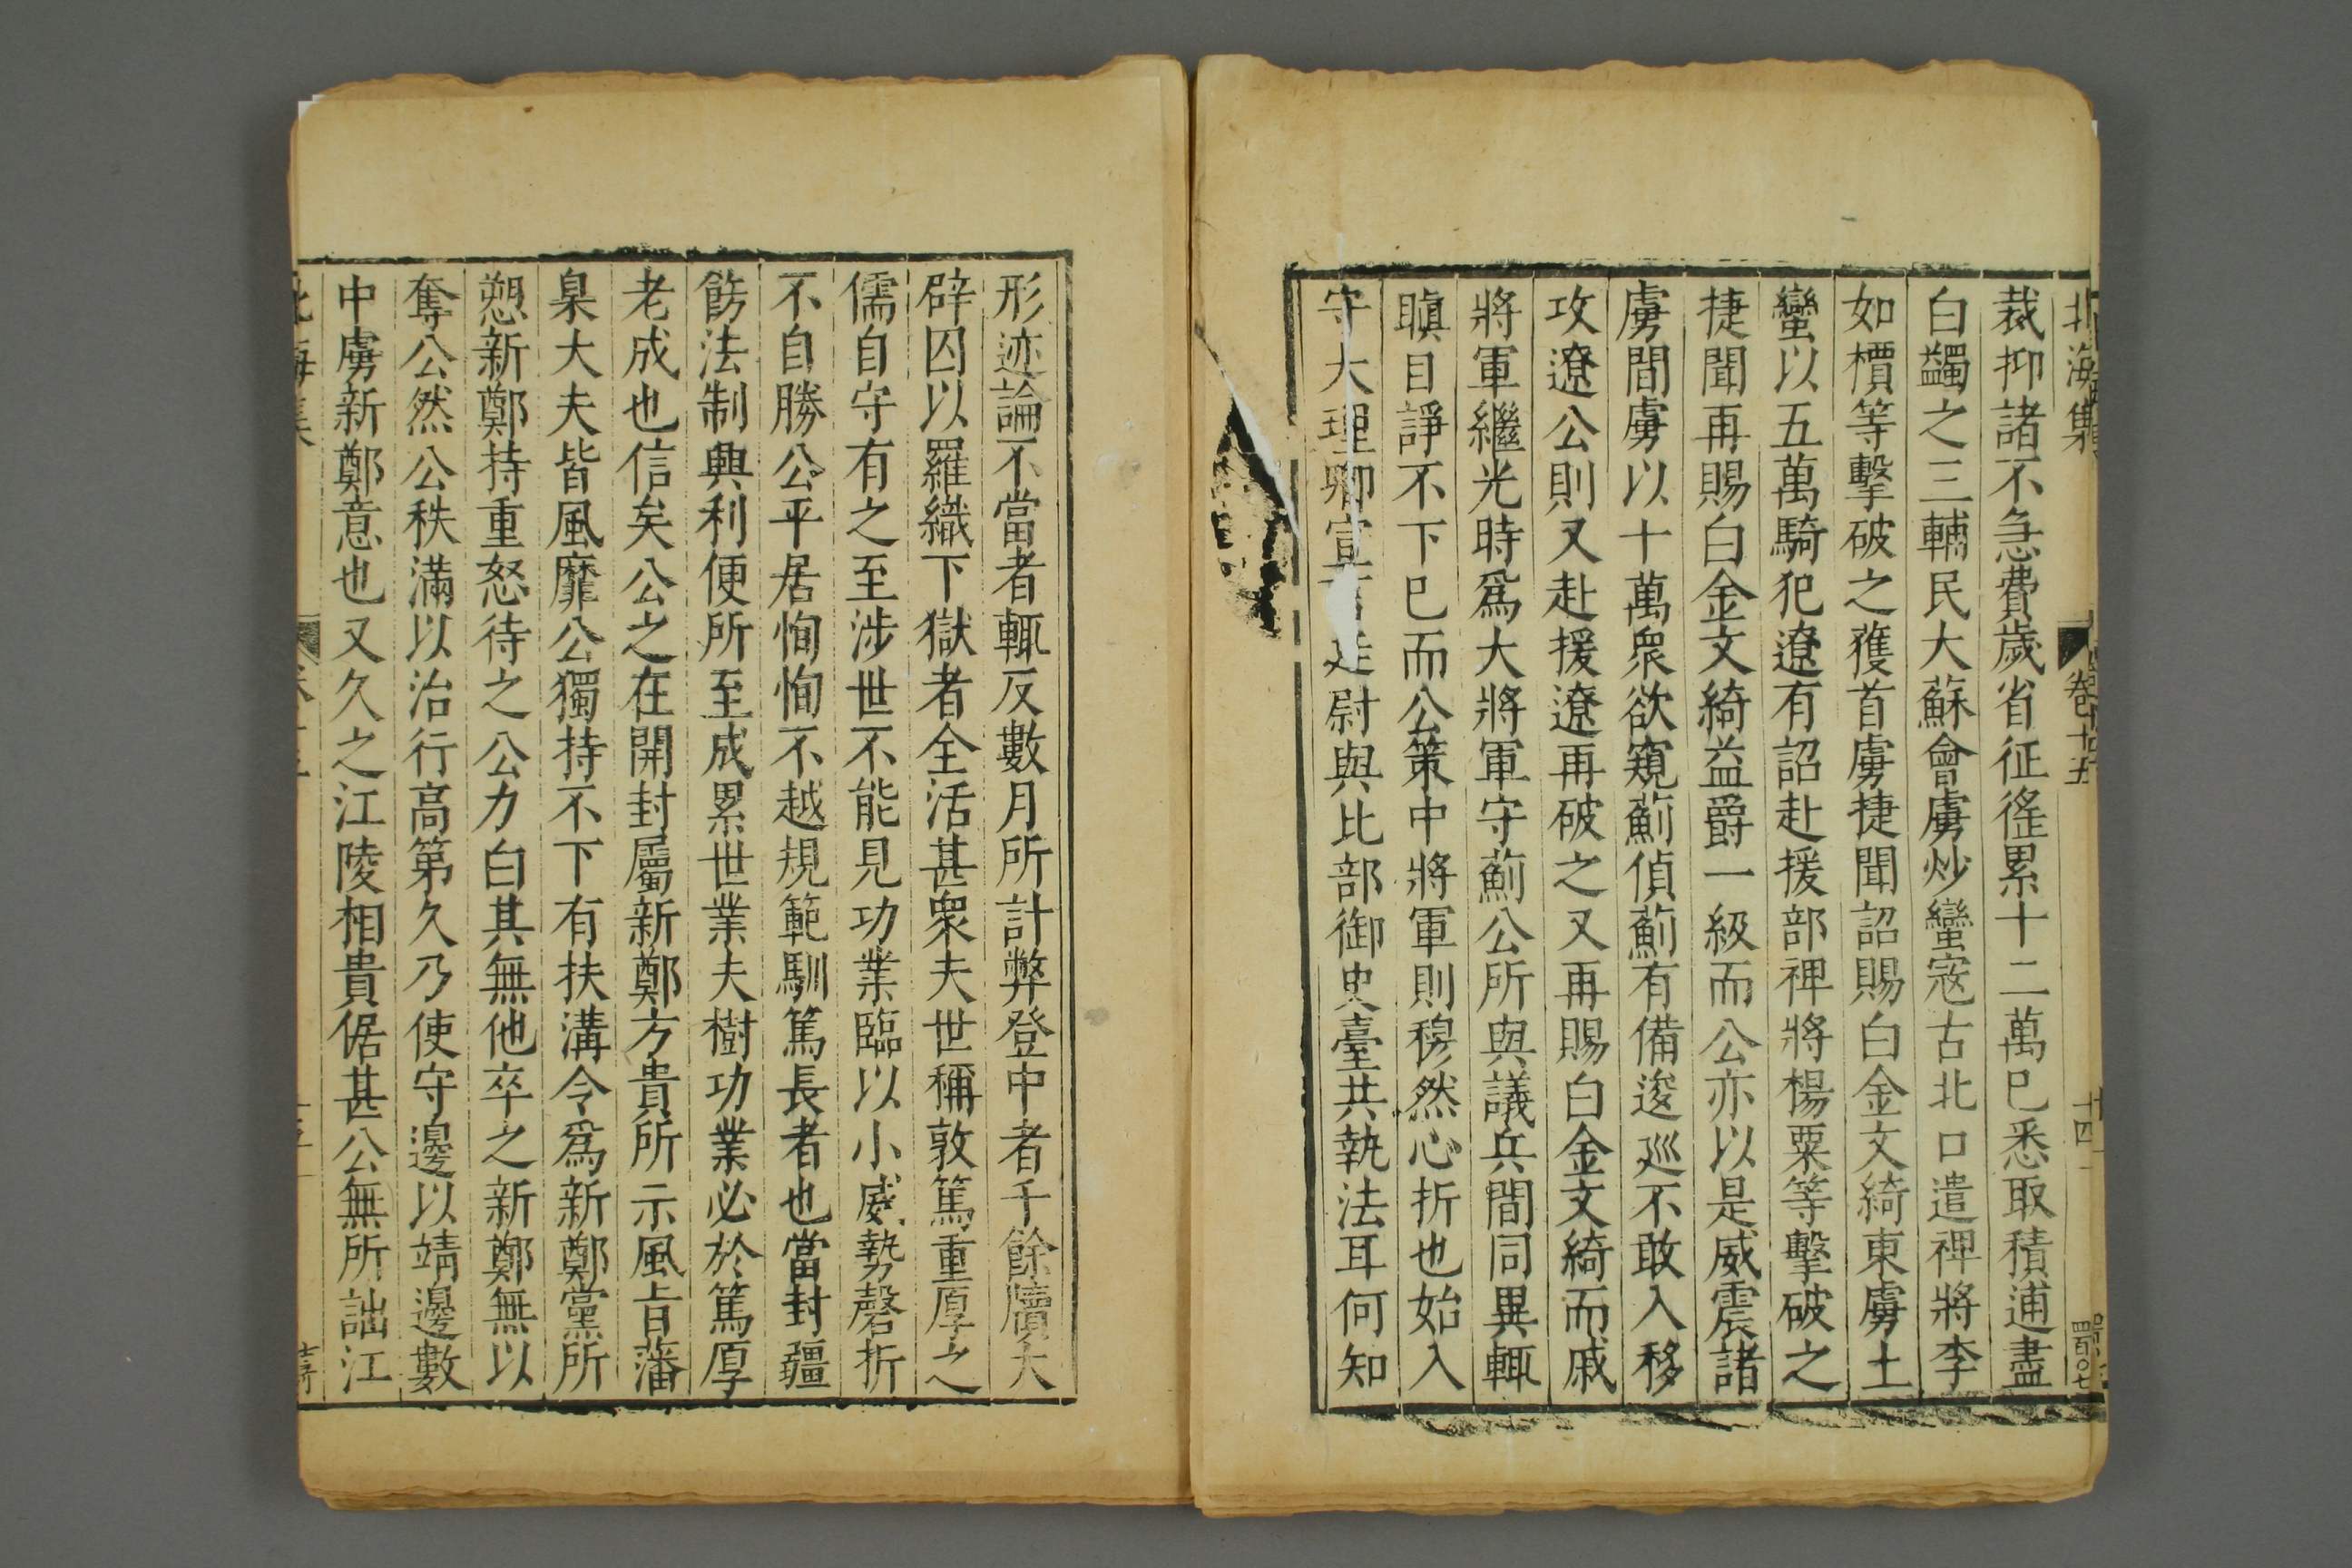 北海集 卷十五 十四 四百〇七
裁抑諸不急費歲省征徭累十二萬巳悉取積逋盡
白蠲之三輔民大蘇會虜炒蠻寇古北口遣裨將李
如檟等擊破之獲首虜捷聞詔賜白金文綺東虜土
蠻以五萬騎犯遼有詔赴援部裨將楊粟等擊破之
捷聞再賜白金文綺益爵一級而公亦以是威震諸
虜間虜以十萬衆欲窺薊偵薊有備逡巡不敢入移
攻遼公則又赴援遼再破之又再賜白金文綺而戚
將軍繼光時爲大將軍守薊公所與議兵間同異輒
瞋目諍不下巳而公策中將軍則穆然心折也始入
守大理卿宣言廷尉與比部御史臺共執法耳何知
形迹論不當者輒反數月所計弊登中者千餘牘大
辟囚以羅織下獄者全活甚衆夫世稱敦篤重厚之
儒自守有之至涉世不能見功業臨以小威勢磬折
不自勝公平居恂恂不越規範馴篤長者也當封疆
飭法制興利便所至成累世業夫樹功業必於篤厚
老成也信矣公之在開封屬新鄭方貴所示風旨藩
臬大夫皆風靡公獨持不下有扶溝令爲新鄭黨所
愬新鄭持重怒待之公力白其無他卒之新鄭無以
奪公然公秩滿以治行高第久乃使守邊以靖邊數
中虜新鄭意也又久之江陵相貴倨甚公無所詘江